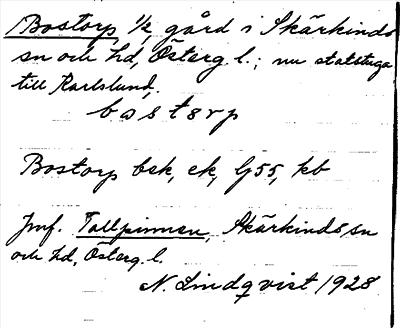 Bostorp, 1/2, gård i Skärkinds
sn och hd, Österg. l.; nu statstuga
till Karlslund.
bostorp
Bostorp bsk, ek, lj 55, kb
Jmf. Tallpinnen, Skärkinds sn
och hd, Österg. l.
N. Lindqvist 1928